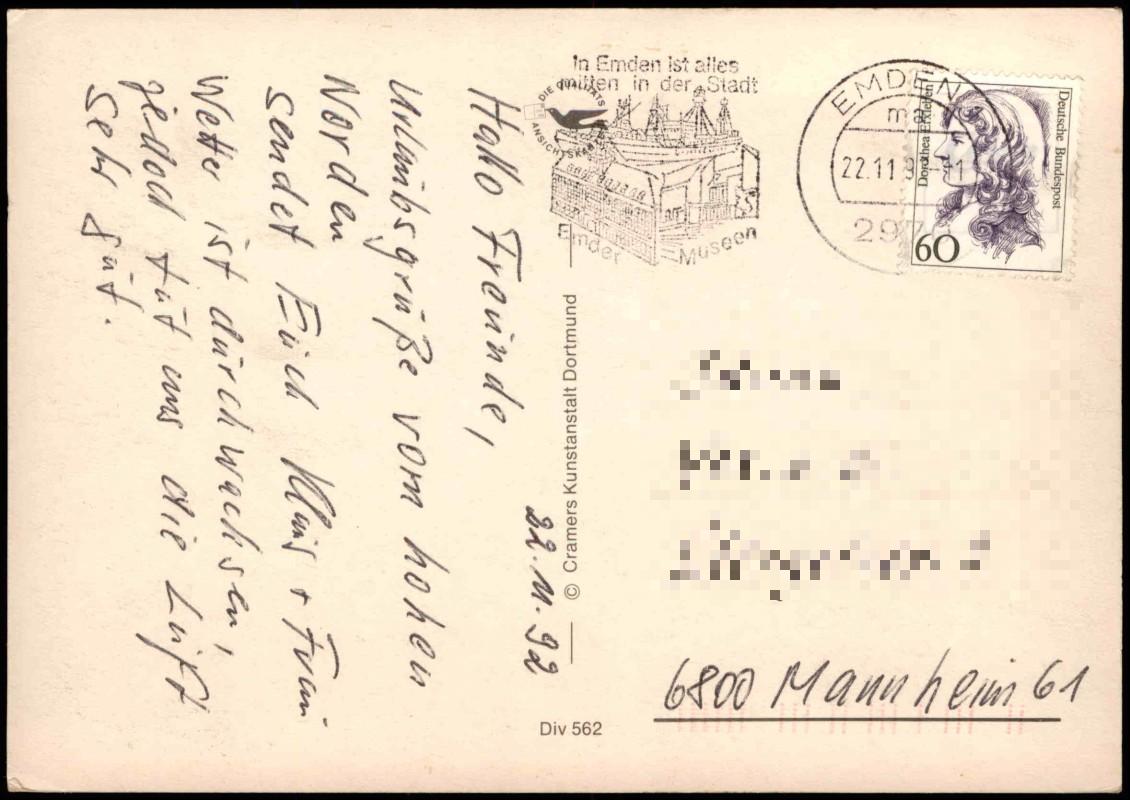 22.11.92
Hallo Freunde,
Urlaubsgrüße vom hohen
Norden
sendet Euch Klaus +
Wetter ist durchwachsen,
jedoch tut uns die Luft
sehr gut.
© Cramers Kunstanstalt Dortmund
Div 562
DIE QUALITÄTS
ANSICHTSKARTE
In Emden ist alles
mitten in der Stadt
Emder Museen
EMDEN
22.11.
Dorothea Erxleben
Deutsche Bundespost
60
6800 Mannheim 61